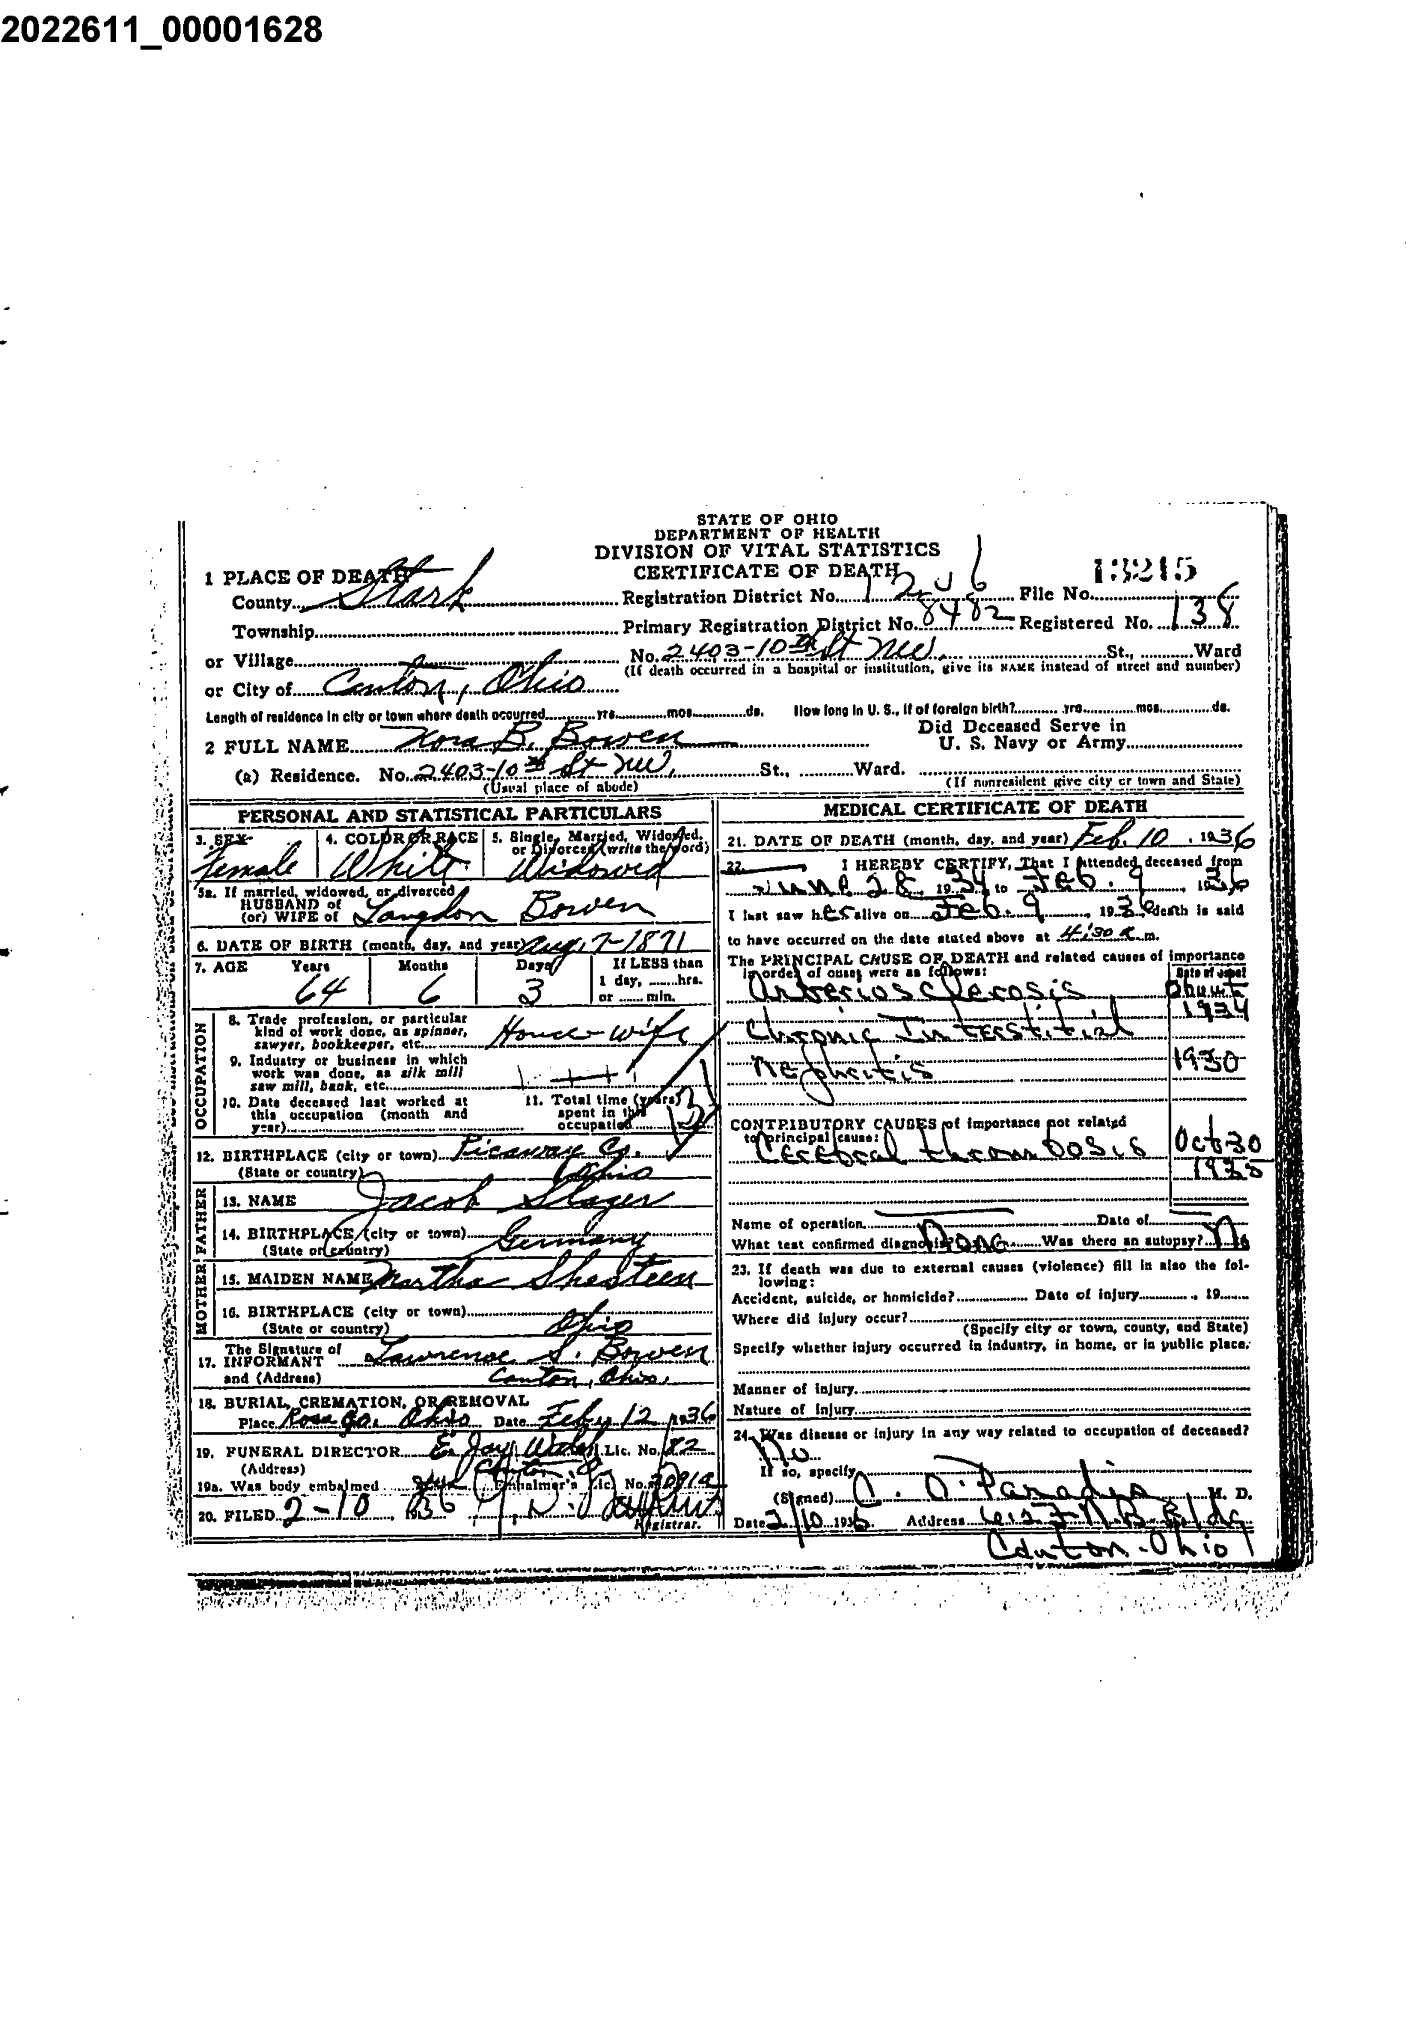 2022611_00001628
STATE OF OHIO
DEPARTMENT OF HEALTH
DIVISION OF VITAL STATISTICS
CERTIFICATE OF DEATH
13215
1 PLACE OF DEATH
County Stark Registration District No. 1206 File No.
Township Primary Registration District No. 8482 Registered No. 138
or Village No. 2403-10th St NW. St., Ward
(If death occurred in a hospital or institution, give its NAME instead of street and number)
or City of Canton, Ohio
Length of residence in city or town where death occurred yrs. mos. ds. How long in U. S., if of foreign birth? yrs. mos. ds.
2 FULL NAME Kora B. Bowen Did Deceased Serve in
U. S. Navy or Army
(a) Residence. No. 2403-10th St NW, St., Ward.
(Usual place of abode) (If nonresident give city or town and State)
PERSONAL AND STATISTICAL PARTICULARS
3. SEX 4. COLOR OR RACE 5. Single, Married, Widowed, or Divorced (write the word)
Female White Widowed
5a. If married, widowed, or divorced
HUSBAND of
(or) WIFE of Langdon Bowen
6. DATE OF BIRTH (month, day, and year) Aug, 7-1871
7. AGE Years Months Days If LESS than
1 day, hrs.
or min.
64 6 3
OCCUPATION
8. Trade profession, or particular
kind of work done, as spinner,
sawyer, bookkeeper, etc. House-wife
9. Industry or business in which
work was done, as silk mill
saw mill, bank, etc.
10. Date deceased last worked at
this occupation (month and
year)
11. Total time (years)
spent in this
occupation
12. BIRTHPLACE (city or town) Picaway Co.
(State or country) Ohio
FATHER
13. NAME Jacob Slager
14. BIRTHPLACE (city or town) Germany
(State or country)
MOTHER
15. MAIDEN NAME Martha Shasteen
16. BIRTHPLACE (city or town)
(State or country) Ohio
The Signature of
17. INFORMANT Lawrence S. Bowen
and (Address) Canton, Ohio.
18. BURIAL, CREMATION, OR REMOVAL
Place Ohio Date Feby 12 1936
19. FUNERAL DIRECTOR Lic. No. 82
(Address) Canton, O
19a. Was body embalmed Embalmer's Lic. No. 3091a
20. FILED 2-10, 1936
Registrar.
MEDICAL CERTIFICATE OF DEATH
21. DATE OF DEATH (month, day, and year) Feb. 10, 1936
22. I HEREBY CERTIFY, That I attended deceased from
June 28, 1934 to Feb. 9, 1936
I last saw her alive on Feb. 9, 1936 death is said
to have occurred on the date stated above at 4:30 A. m.
The PRINCIPAL CAUSE OF DEATH and related causes of importance
in order of onset were as follows: Date of onset
Arteriosclerosis about
1934
Chronic Interstitial
Nephritis 1930
CONTRIBUTORY CAUSES of importance not related
to principal cause:
Cerebral thrombosis Oct-30
1935
Name of operation Date of
What test confirmed diagnosis? None Was there an autopsy? No
23. If death was due to external causes (violence) fill in also the following:
Accident, suicide, or homicide? Date of injury , 19
Where did injury occur?
(Specify city or town, county, and State)
Specify whether injury occurred in industry, in home, or in public place.
Manner of injury
Nature of injury
24. Was disease or injury in any way related to occupation of deceased?
No
If so, specify
(Signed) C. O. Paradis M. D.
Date 2/10 1936. Address 612 F.N.B. Bldg
Canton-Ohio